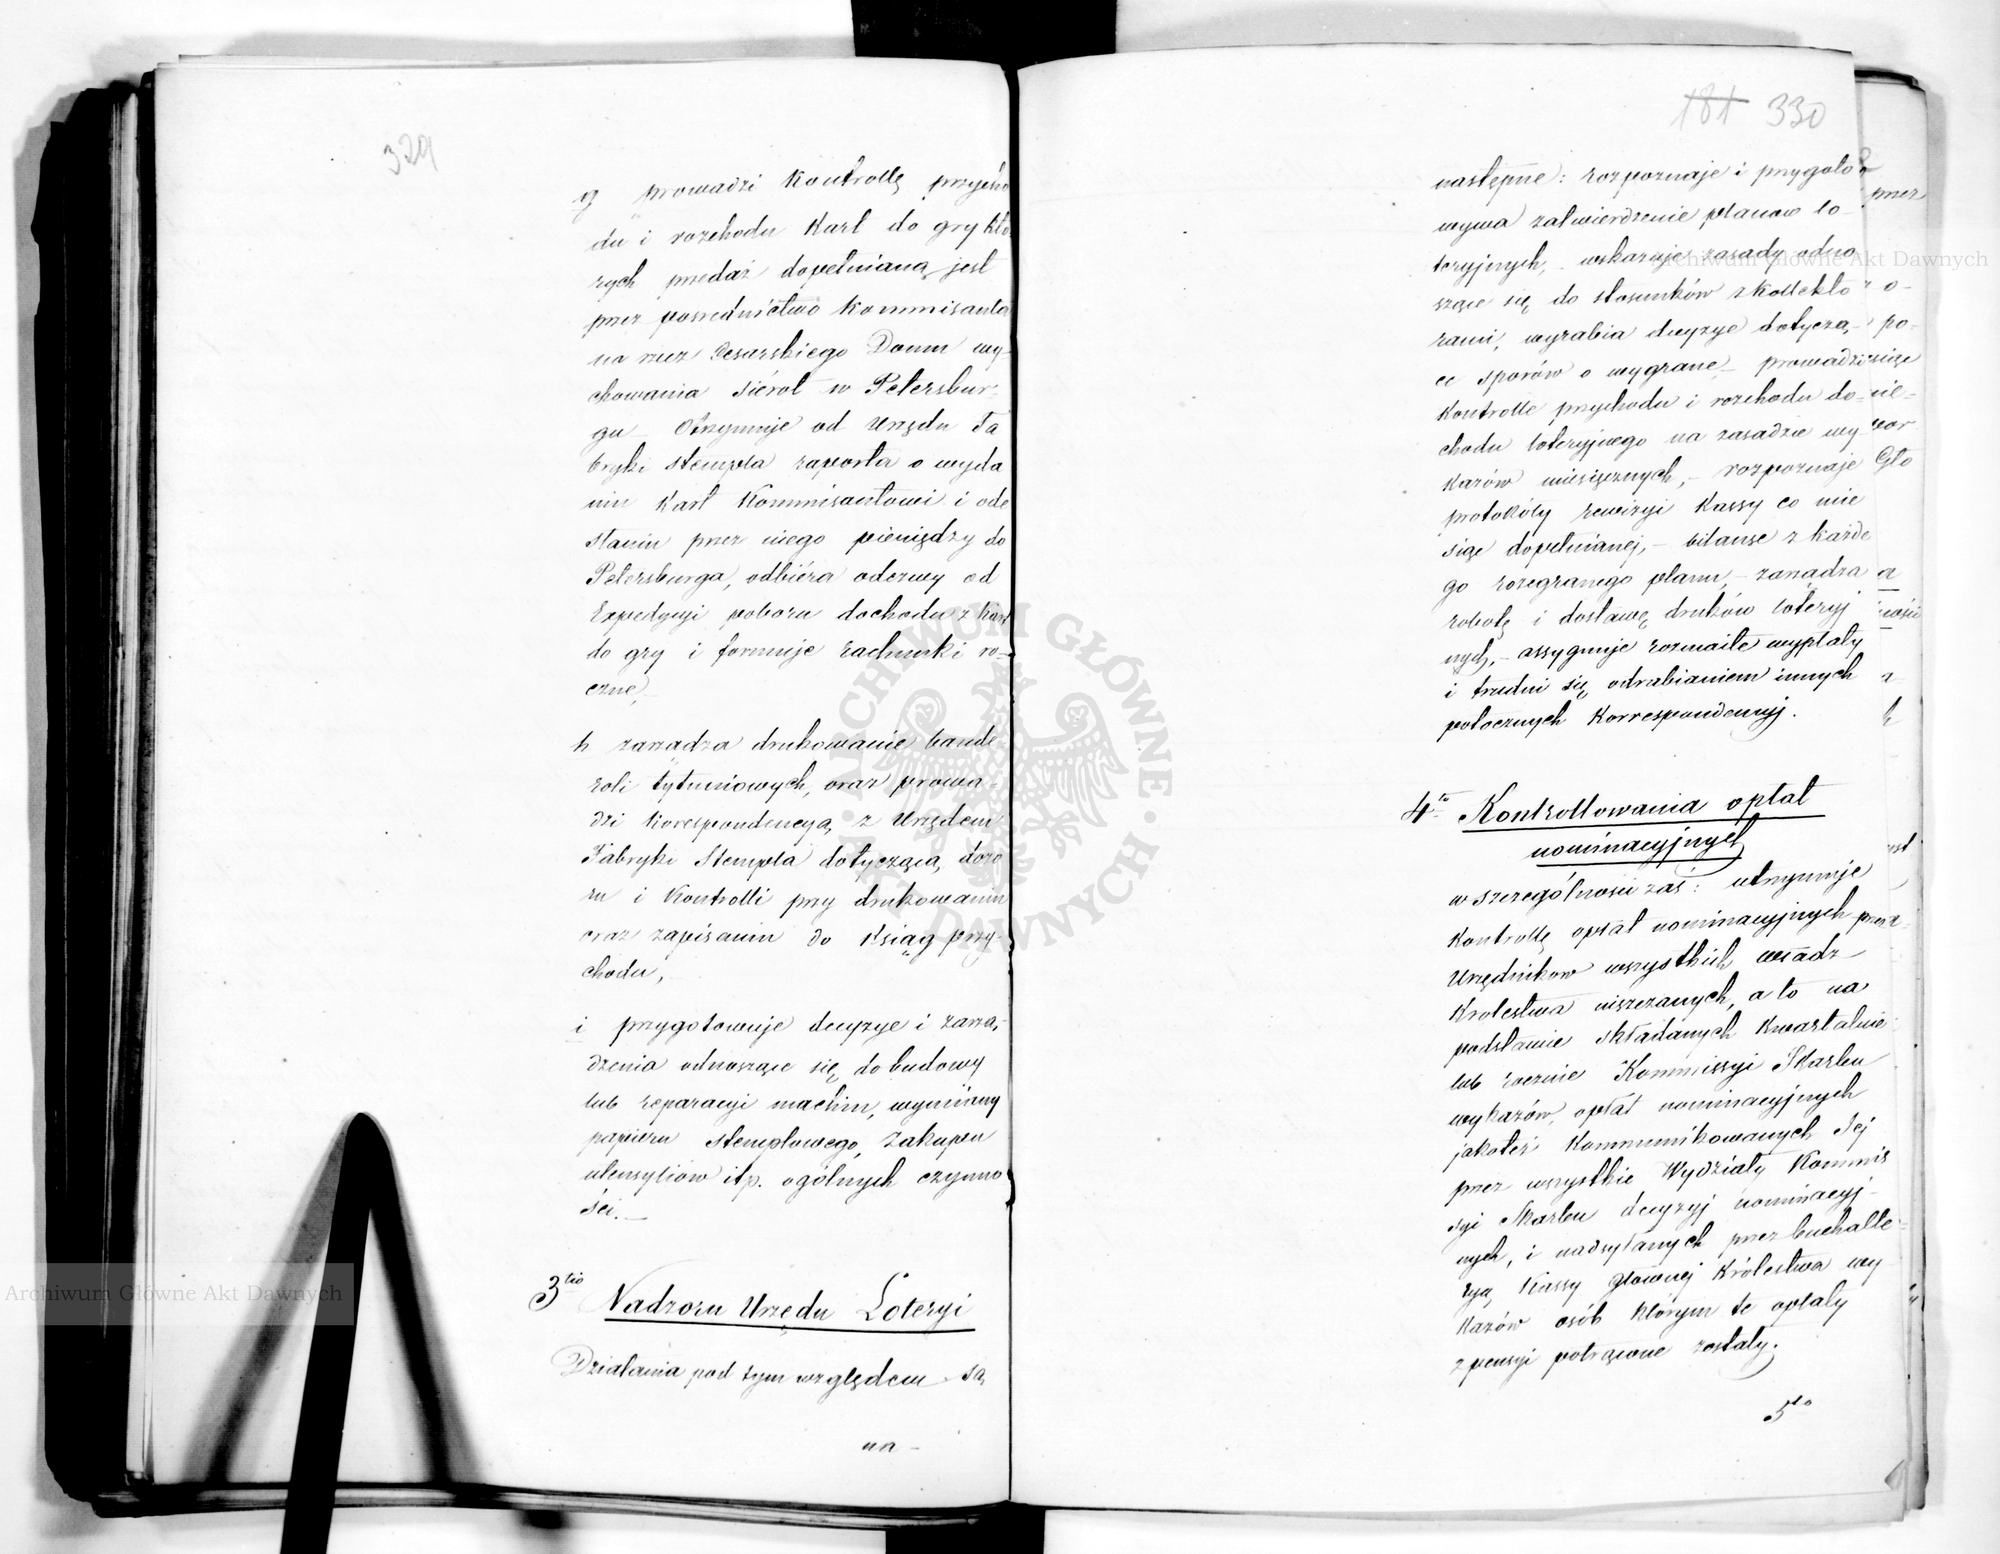 329
g prowadzi Kontrollę przycho
du i rozchodu Kart do gry któ
rych przedaż dopełnianą jest
przez pośrednictwo Kommisanta
na rzecz Cesarskiego Domu wy-
chowania Siérot w Petersbur-
gu Otrzymuje od Urzędu Fa
bryki stempla raporta o wyda
niu Kart Kommisantowi i ode
słaniu przez niego pieniędzy do
Petersburga, odbiéra odezwy od
Expedycyi poboru dochodu z Kart
do gry i formuje rachunki ro-
czne,
h zarządza drukowanie bande-
roli tytuniowych, oraz prowa-
dzi korespondencyą z Urzędem
Fabryki Stempla dotyczącą dozo
ru i Kontrolli przy drukowaniu
oraz zapisaniu do Ksiąg przy-
chodu,
i przygotowuje decyzye i zarzą-
dzenia odnoszące się do budowy
lub reparacyi machin, wymiany
papieru stemplowego, zakupu
utensyliów itp. ogólnych czynno
ści.
3tio Nadzoru Urzędu Loteryi
Działania pod tym względem są
na-
181 330
następne: rozpoznaje i przygoto
wywa zatwierdzenie planow lo-
teryjnych, wskazuje zasady odno
szące się do stosunków z Kollekto
rami, wyrabia decyzye dotyczą-
ce sporów o wygrane, prowadzi
Kontrolle przychodu i rozchodu do-
chodu loteryjnego na zasadzie wy
kazów miesięcznych, rozpoznaje
protokóły rewizyi Kassy co mie
siąc dopełnianej, bilanse z każde
go rozegranego planu, zarządza
robotę i dostawę druków loteryj
nych, assygnuje rozmaite wypłaty
i trudni się odrabianiem innych
potocznych Korrespondencyj.
4to Kontrollowania opłat
nominacyjnych
w szczególności zaś: utrzymuje
Kontrollę opłat nominacyjnych przez
Urzędnikow wszystkich władz
Krolestwa uiszczanych, a to na
podstawie składanych Kwartalnie
lub rocznie Kommissyi Skarbu
wykazów opłat nominacyjnych
jakoteż Kommunikowanych Jej
przez wszystkie Wydziały Kommis
syi Skarbu decyzyj nominacyj-
nych, i nadsyłanych przez buchalte-
ryą Kassy głównej Królestwa wy
kazów osób którym te opłaty
z pensyi potrącone zostały.
5to
Archiwum Główne Akt Dawnych
Archiwum Główne Akt Dawnych
ARCHIWUM GŁÓWNE AKT DAWNYCH